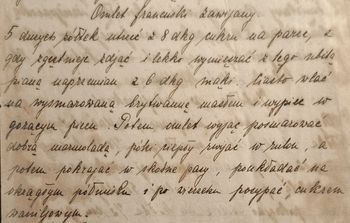 Omlet francuski zawijany.
5 dużych żółtek utrzeć z 8 dkg cukru na parze, a
gdy zgęstnieje zdjąć i lekko wymieszać z tego ubitą
pianą naprzemian z 6 dkg mąki. Ciasto wlać
na wysmarowaną brytwannę masłem i wypiec w
gorącym piecu. Potem omlet wyjąć posmarować
dobrą marmoladą, póki ciepły zwijać w rulon, a
potem pokrajać w skośne pasy, poukładać na
okrągłym półmisku i po wierzchu posypać cukrem
waniljowym.